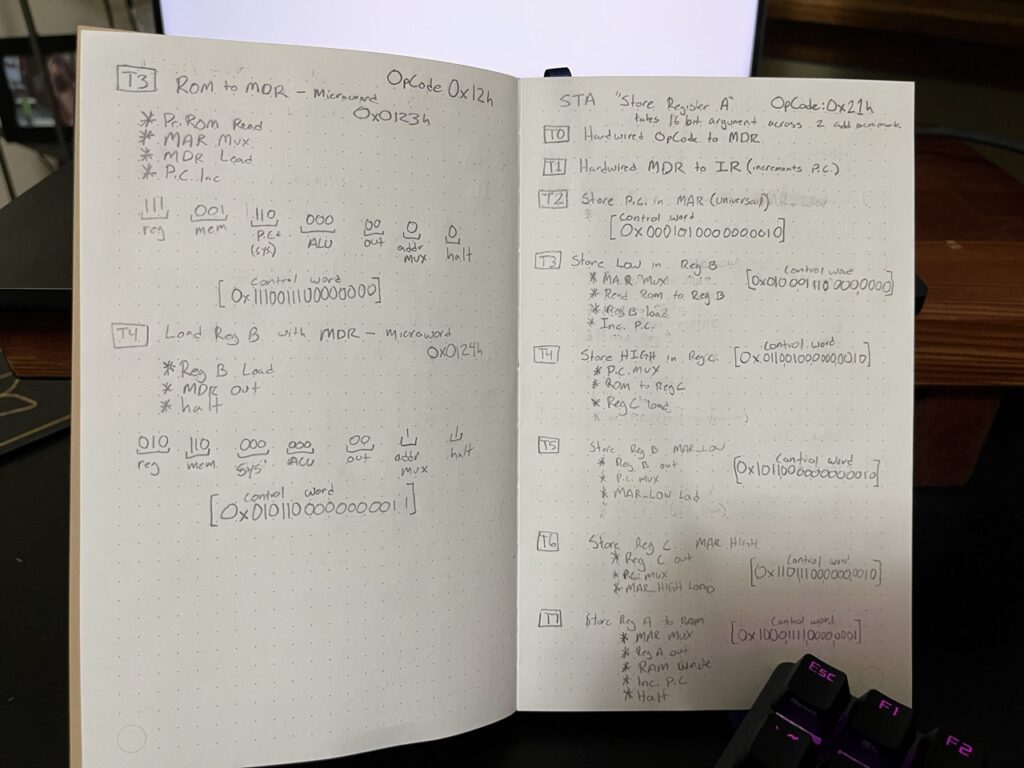 T3 ROM to MDR - Microword
OpCode 0x12h
0x0123h
* Pr. ROM Read
* MAR Mux
* MDR Load
* P.C. Inc
111 001 110 000 00 0 0
reg mem P.C+ (sys) ALU out addr mux halt
control word
[0x1110011100000000]
T4 Load Reg B with MDR - Microword
0x0124h
* Reg B Load
* MDR out
* halt
010 110 000 000 00 1 1
reg mem sys ALU out addr mux halt
control word
[0x0101100000000011]
STA "Store Register A" OpCode: 0x21h
takes 16 bit argument across 2 add
T0 Hardwired OpCode to MDR
T1 Hardwired MDR to IR (increments P.C.)
T2 Store P.C. in MAR (Universal)
control word
[0x0001010000000010]
T3 Store Low in Reg B
control word
* MAR Mux
* Read Rom to Reg B
* Reg B load
* Inc. P.C.
T4 Store HIGH in Reg C
control word
[0x0110010000000010]
* P.C. MUX
* ROM to Reg C
* Reg C load
T5 Store Reg B MAR_LOW
control word
[0x1011000000000010]
* Reg B out
* P.C. mux
* MAR_LOW Lad
T6 Store Reg C MAR HIGH
control word
[0x1101110000000010]
* Reg C out
* P.C. mux
* MAR_HIGH LOAD
T7 Store Reg A to RAM
control word
[0x1000111100000001]
* MAR MUX
* Reg A out
* RAM write
* Inc. P.C
* Halt
Esc
F1
F2
~